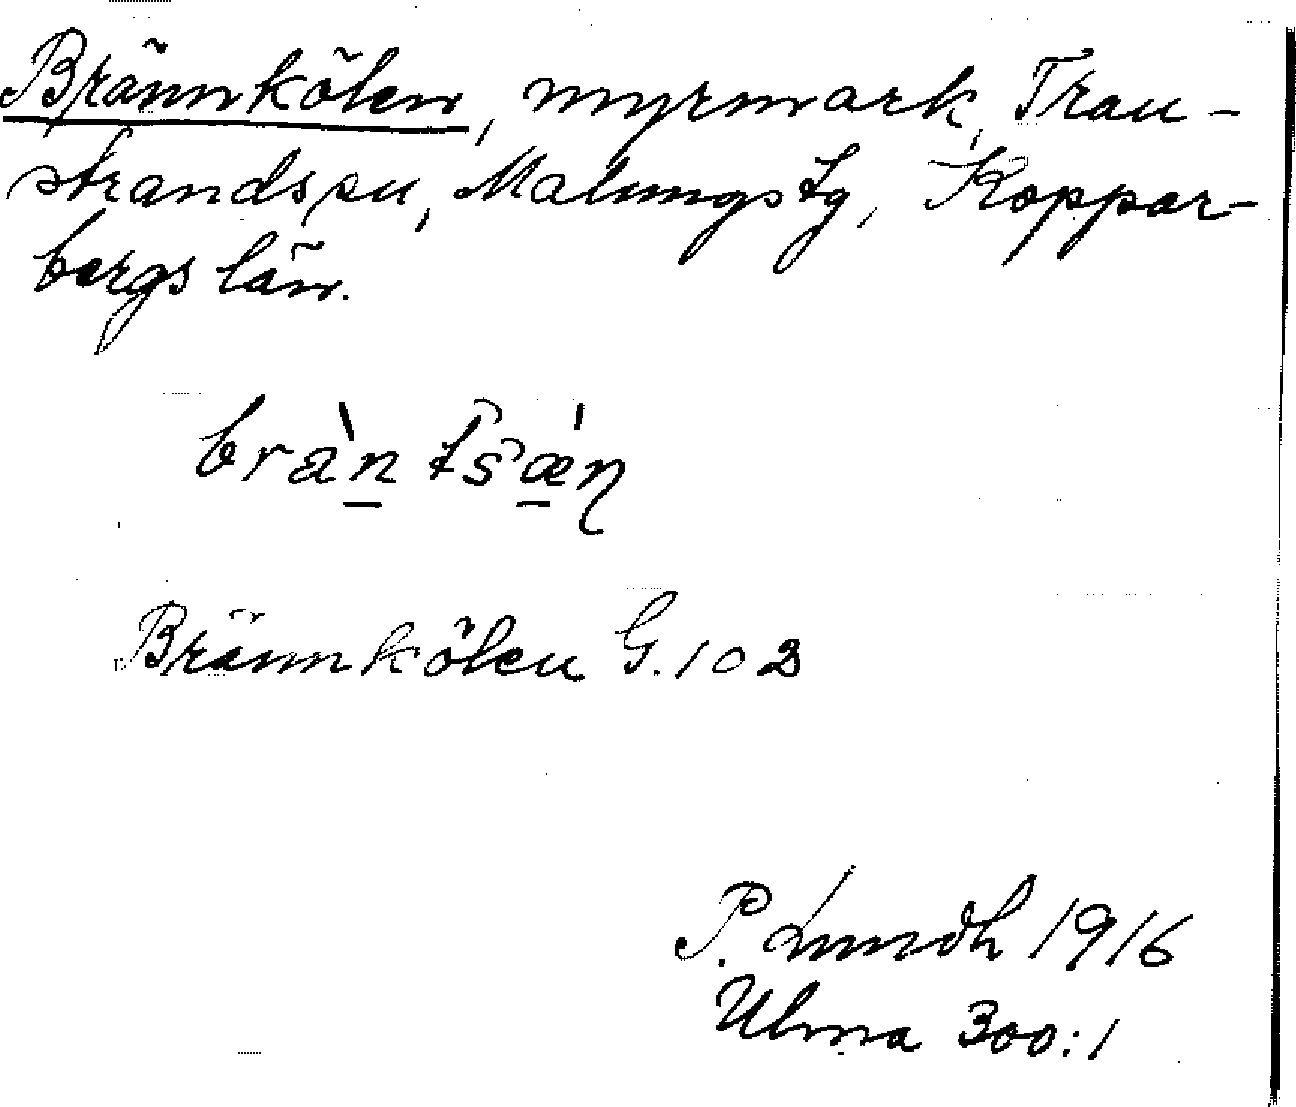 Brännkölen, myrmark, Tran-
strands sn, Malungs tg, Koppar-
bergs län.
bràntsǽn
Brännkölen G. 102
P. Lundh 1916
Ulma 300:1